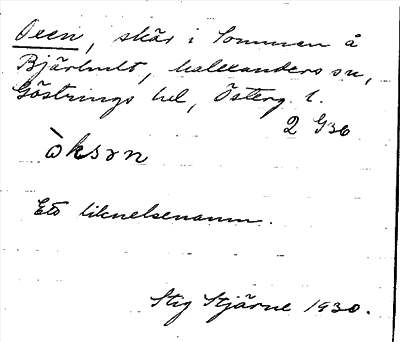 Oxen, skär i Sommen å
Bjärhult, Malexanders sn,
Göstrings hd, Österg. l.
2 G36
òksən
Ett liknelsenamn.
Stig Stjärne 1930.